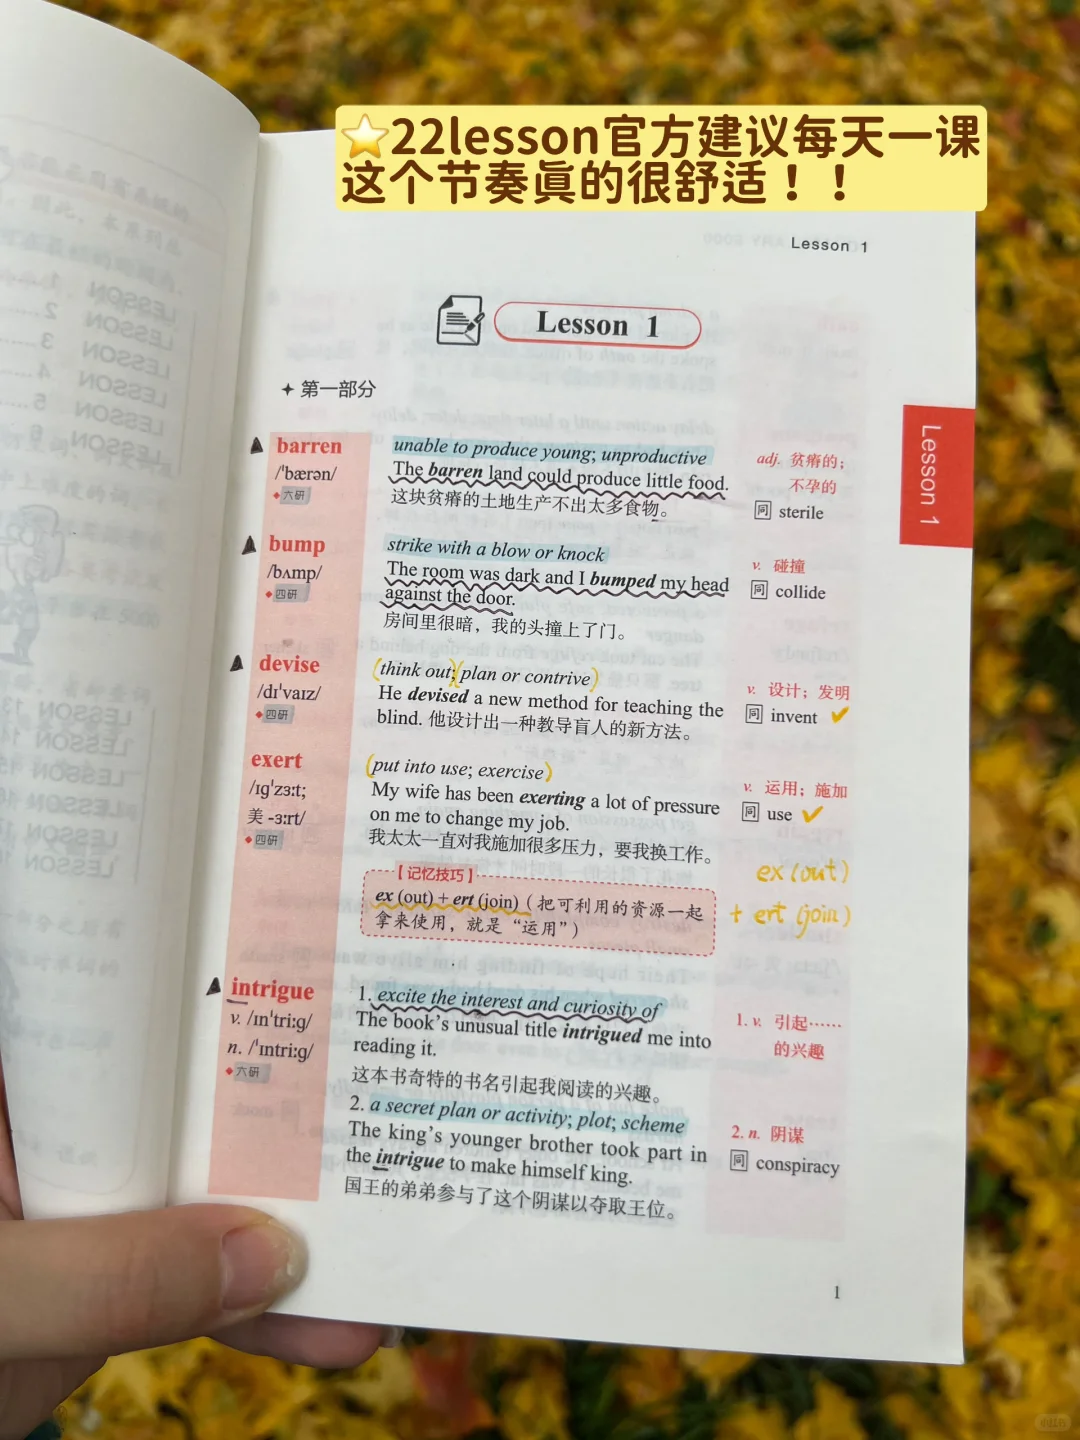 ⭐22lesson官方建议每天一课
这个节奏真的很舒适！！
Lesson 1
Lesson 1
✦ 第一部分
▲ barren
/ˈbærən/
◆六研
unable to produce young; unproductive
The barren land could produce little food.
这块贫瘠的土地生产不出太多食物。
adj. 贫瘠的；
不孕的
同 sterile
▲ bump
/bʌmp/
◆四研
strike with a blow or knock
The room was dark and I bumped my head
against the door.
房间里很暗，我的头撞上了门。
v. 碰撞
同 collide
▲ devise
/dɪˈvaɪz/
◆四研
(think out;)(plan or contrive)
He devised a new method for teaching the
blind. 他设计出一种教导盲人的新方法。
v. 设计；发明
同 invent ✔
exert
/ɪɡˈzɜːt;
美 -ɜːrt/
◆四研
(put into use; exercise)
My wife has been exerting a lot of pressure
on me to change my job.
我太太一直对我施加很多压力，要我换工作。
v. 运用；施加
同 use ✔
【记忆技巧】
ex (out) + ert (join)（把可利用的资源一起
拿来使用，就是“运用”）
ex (out)
+ ert (join)
▲ intrigue
v. /ɪnˈtriːɡ/
n. /ˈɪntriːɡ/
◆六研
1. excite the interest and curiosity of
The book's unusual title intrigued me into
reading it.
这本书奇特的书名引起我阅读的兴趣。
1. v. 引起……
的兴趣
2. a secret plan or activity; plot; scheme
The king's younger brother took part in
the intrigue to make himself king.
国王的弟弟参与了这个阴谋以夺取王位。
2. n. 阴谋
同 conspiracy
Lesson 1
1